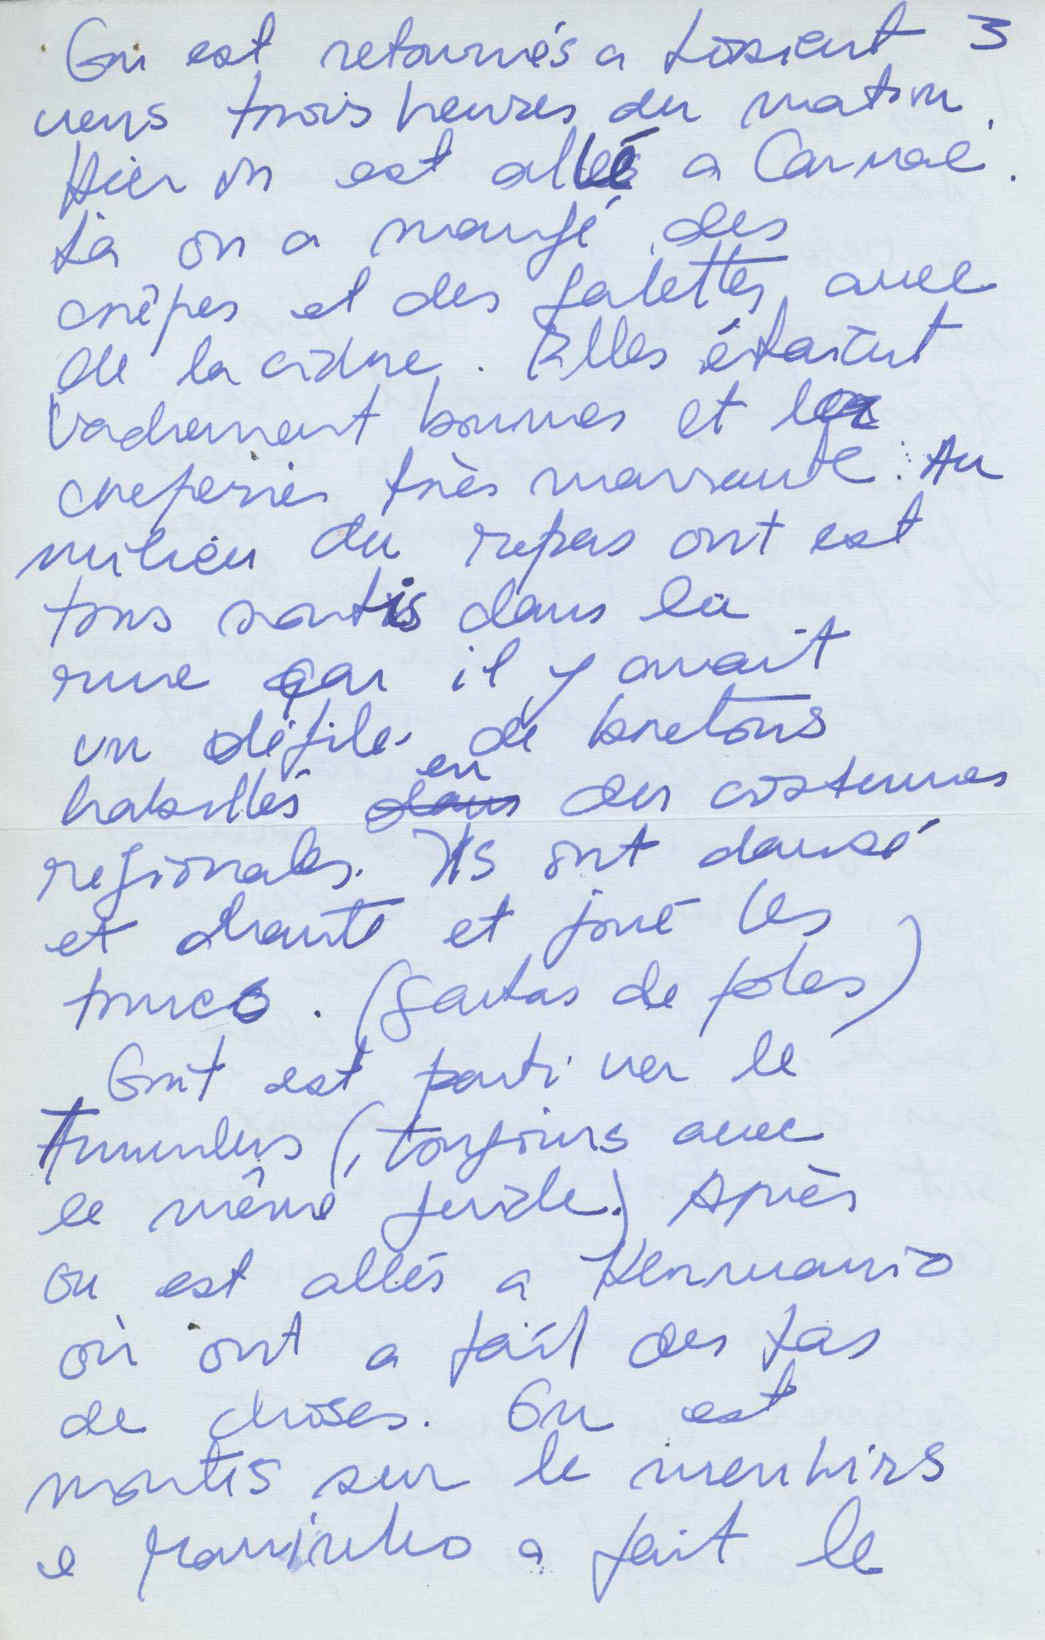 On est retournés a Losient 3
vers trois heures du matin.
Hier on est allé a Carnac.
Là on a mangé des
crêpes et des galettes avec
de la cidre. Elles étaient
vachement bonnes et la
creperies très marrante. Au
milieu du repas ont est
tous sortis dans la
rue car il y avait
un défile de bretons
habillés en des costumes
regionales. Ils ont dansé
et chanté et joué les
trucs. (gaitas de foles)
Ont est parti ver le
Tumulus (, toujours avec
le même guide.) Après
on est allés a Kermario
où ont a fait des tas
de choses. On est
montés sur le menhirs
e Ramirho a fait le